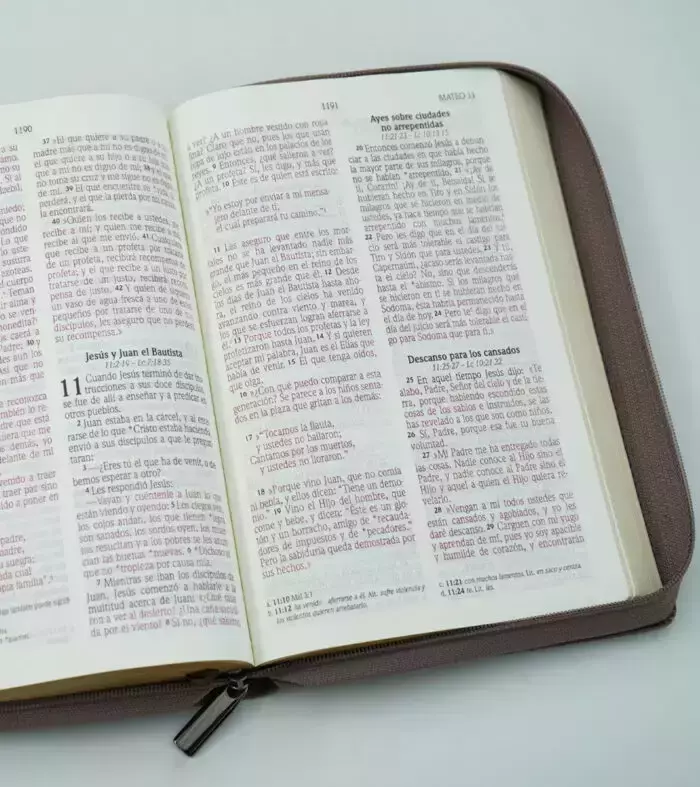 1190
37 »El que quiere a su padre o a su
madre más que a mí no es digno de mí;
el que quiere a su hijo o a su hija más
que a mí no es digno de mí; 38 y el que
no toma su cruz y me sigue no es digno
de mí. 39 El que encuentre su vida, la
perderá, y el que la pierda por mi causa,
la encontrará.
40 »Quien los recibe a ustedes, me
recibe a mí; y quien me recibe a mí,
recibe al que me envió. 41 Cualquiera
que recibe a un profeta por tratarse
de un profeta, recibirá recompensa de
profeta; y el que recibe a un justo por
tratarse de un justo, recibirá recom-
pensa de justo. 42 Y quien dé siquiera
un vaso de agua fresca a uno de estos
pequeños por tratarse de uno de mis
discípulos, les aseguro que no perderá
su recompensa.»
Jesús y Juan el Bautista
11:2-19 – Lc 7:18-35
11 Cuando Jesús terminó de dar ins-
trucciones a sus doce discípulos,
se fue de allí a enseñar y a predicar en
otros pueblos.
2 Juan estaba en la cárcel, y al ente-
rarse de lo que *Cristo estaba haciendo,
envió a sus discípulos a que le pregun-
taran:
3 —¿Eres tú el que ha de venir, o de-
bemos esperar a otro?
4 Les respondió Jesús:
—Vayan y cuéntenle a Juan lo que
están viendo y oyendo: 5 Los ciegos ven,
los cojos andan, los que tienen *lepra
son sanados, los sordos oyen, los muer-
tos resucitan y a los pobres se les anun-
cian las buenas *nuevas. 6 *Dichoso el
que no *tropieza por causa mía.
7 Mientras se iban los discípulos de
Juan, Jesús comenzó a hablarle a la
multitud acerca de Juan: «¿Qué salie-
ron a ver al desierto? ¿Una caña sacudi-
da por el viento? 8 Si no, ¿qué salieron
1191
a ver? ¿A un hombre vestido con ropa
fina? Claro que no, pues los que usan
ropa de lujo están en los palacios de los
reyes. 9 Entonces, ¿qué salieron a ver?
¿A un profeta? Sí, les digo, y más que
profeta. 10 Éste es de quien está escrito:
»"Yo estoy por enviar a mi mensa-
jero delante de ti,
el cual preparará tu camino."
11 Les aseguro que entre los mor-
tales no se ha levantado nadie más
grande que Juan el Bautista; sin embar-
go, el más pequeño en el reino de los
cielos es más grande que él. 12 Desde
los días de Juan el Bautista hasta aho-
ra, el reino de los cielos ha venido
avanzando contra viento y marea, y
los que se esfuerzan logran aferrarse a
él. 13 Porque todos los profetas y la ley
profetizaron hasta Juan. 14 Y si quieren
aceptar mi palabra, Juan es el Elías que
había de venir. 15 El que tenga oídos,
que oiga.
16 »¿Con qué puedo comparar a esta
generación? Se parece a los niños senta-
dos en la plaza que gritan a los demás:
17 »"Tocamos la flauta,
y ustedes no bailaron;
Cantamos por los muertos,
y ustedes no lloraron."
18 »Porque vino Juan, que no comía
ni bebía, y ellos dicen: "Tiene un demo-
nio." 19 Vino el Hijo del hombre, que
come y bebe, y dicen: "Éste es un glo-
tón y un borracho, amigo de *recauda-
dores de impuestos y de *pecadores."
Pero la sabiduría queda demostrada por
sus hechos.»
a. 11:10 Mal 3:1
b. 11:12 ha venido... aferrarse a él. Alt. sufre violencia y
los violentos quieren arrebatarlo.
MATEO 11
Ayes sobre ciudades
no arrepentidas
11:21-23 – Lc 10:13-15
20 Entonces comenzó Jesús a denun-
ciar a las ciudades en que había hecho
la mayor parte de sus milagros, porque
no se habían *arrepentido. 21 «¡Ay de
ti, Corazín! ¡Ay de ti, Betsaida! Si se
hubieran hecho en Tiro y en Sidón los
milagros que se hicieron en medio de
ustedes, ya hace tiempo que se habrían
arrepentido con muchos lamentos.
22 Pero les digo que en el día del jui-
cio será más tolerable el castigo para
Tiro y Sidón que para ustedes. 23 Y tú,
Capernaúm, ¿acaso serás levantada has-
ta el cielo? No, sino que descenderás
hasta el *abismo. Si los milagros que
se hicieron en ti se hubieran hecho en
Sodoma, ésta habría permanecido hasta
el día de hoy. 24 Pero te digo que en el
día del juicio será más tolerable el casti-
go para Sodoma que para ti.»
Descanso para los cansados
11:25-27 – Lc 10:21-22
25 En aquel tiempo Jesús dijo: «Te
alabo, Padre, Señor del cielo y de la tie-
rra, porque habiendo escondido estas
cosas de los sabios e instruidos, se las
has revelado a los que son como niños.
26 Sí, Padre, porque esa fue tu buena
voluntad.
27 »Mi Padre me ha entregado todas
las cosas. Nadie conoce al Hijo sino el
Padre, y nadie conoce al Padre sino el
Hijo y aquel a quien el Hijo quiera re-
velarlo.
28 »Vengan a mí todos ustedes que
están cansados y agobiados, y yo les
daré descanso. 29 Carguen con mi yugo
y aprendan de mí, pues yo soy apacible
y humilde de corazón, y encontrarán
c. 11:21 con muchos lamentos. Lit. en saco y ceniza.
d. 11:24 te. Lit. les.